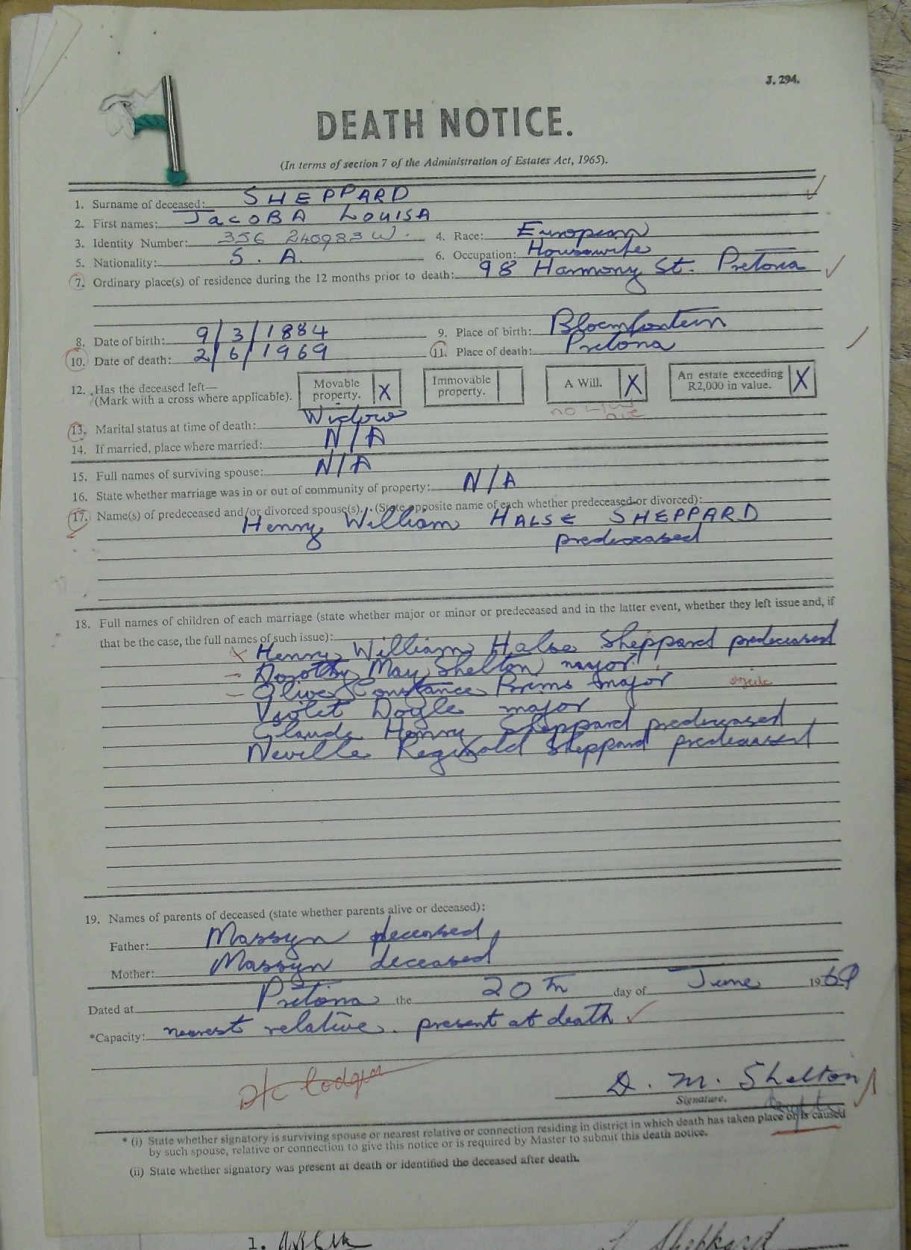 J. 294.
DEATH NOTICE.
(In terms of section 7 of the Administration of Estates Act, 1965).
1. Surname of deceased: SHEPPARD
2. First names: JACOBA LOUISA
3. Identity Number: 356 240983 W. 4. Race: European
5. Nationality: S. A. 6. Occupation: Housewife
7. Ordinary place(s) of residence during the 12 months prior to death: 98 Harmony St. Pretoria
8. Date of birth: 9/3/1884 9. Place of birth: Bloemfontein
10. Date of death: 2/6/1969 11. Place of death: Pretoria
12. Has the deceased left— Movable property. X Immovable property. A Will. X An estate exceeding R2,000 in value. X
(Mark with a cross where applicable).
13. Marital status at time of death: Widow
14. If married, place where married: N/A
15. Full names of surviving spouse: N/A
16. State whether marriage was in or out of community of property: N/A
17. Name(s) of predeceased and/or divorced spouse(s). (State opposite name of each whether predeceased or divorced):
Henry William HALSE SHEPPARD
predeceased
18. Full names of children of each marriage (state whether major or minor or predeceased and in the latter event, whether they left issue and, if
that be the case, the full names of such issue):
x Henry William Halse Sheppard predeceased
Dorothy May Shelton major
Olive Constance Brims major
Violet Doyle major
Claude Henry Sheppard predeceased
Neville Reginald Sheppard predeceased
19. Names of parents of deceased (state whether parents alive or deceased):
Father: Massyn deceased
Mother: Massyn deceased
Dated at Pretoria the 20th day of June 1969
*Capacity: nearest relative. present at death
D. M. Shelton
Signature.
* (i) State whether signatory is surviving spouse or nearest relative or connection residing in district in which death has taken place or is caused
by such spouse, relative or connection to give this notice or is required by Master to submit this death notice.
(ii) State whether signatory was present at death or identified the deceased after death.
1.
Sheppard